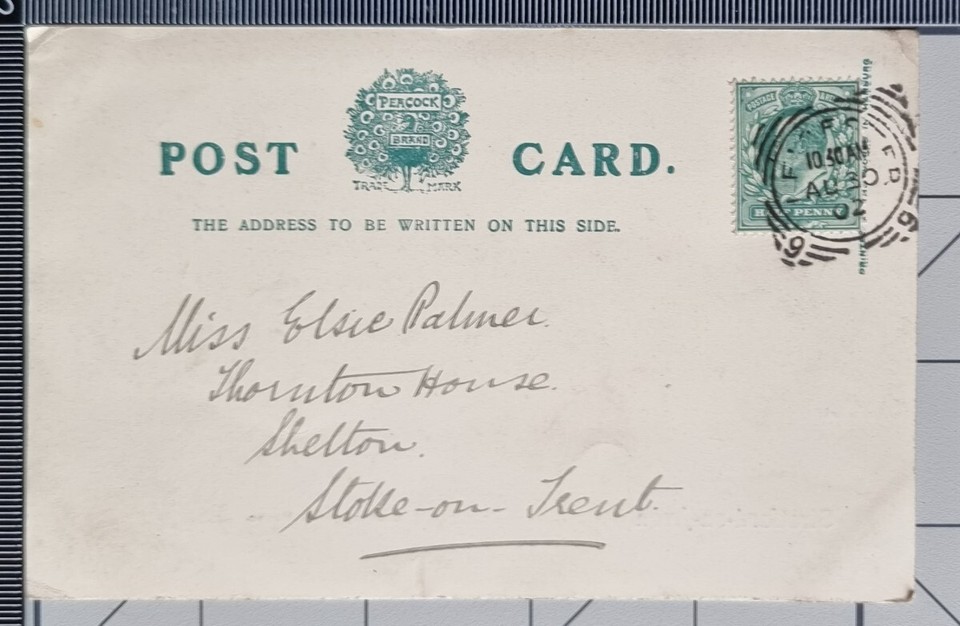 PEACOCK
BRAND
TRADE MARK
POST CARD.
THE ADDRESS TO BE WRITTEN ON THIS SIDE.
POSTAGE
HALF PENNY
10 30 AM
AU 30
02
9 9
Miss Elsie Palmer.
Thornton House.
Shelton.
Stoke-on-Trent.